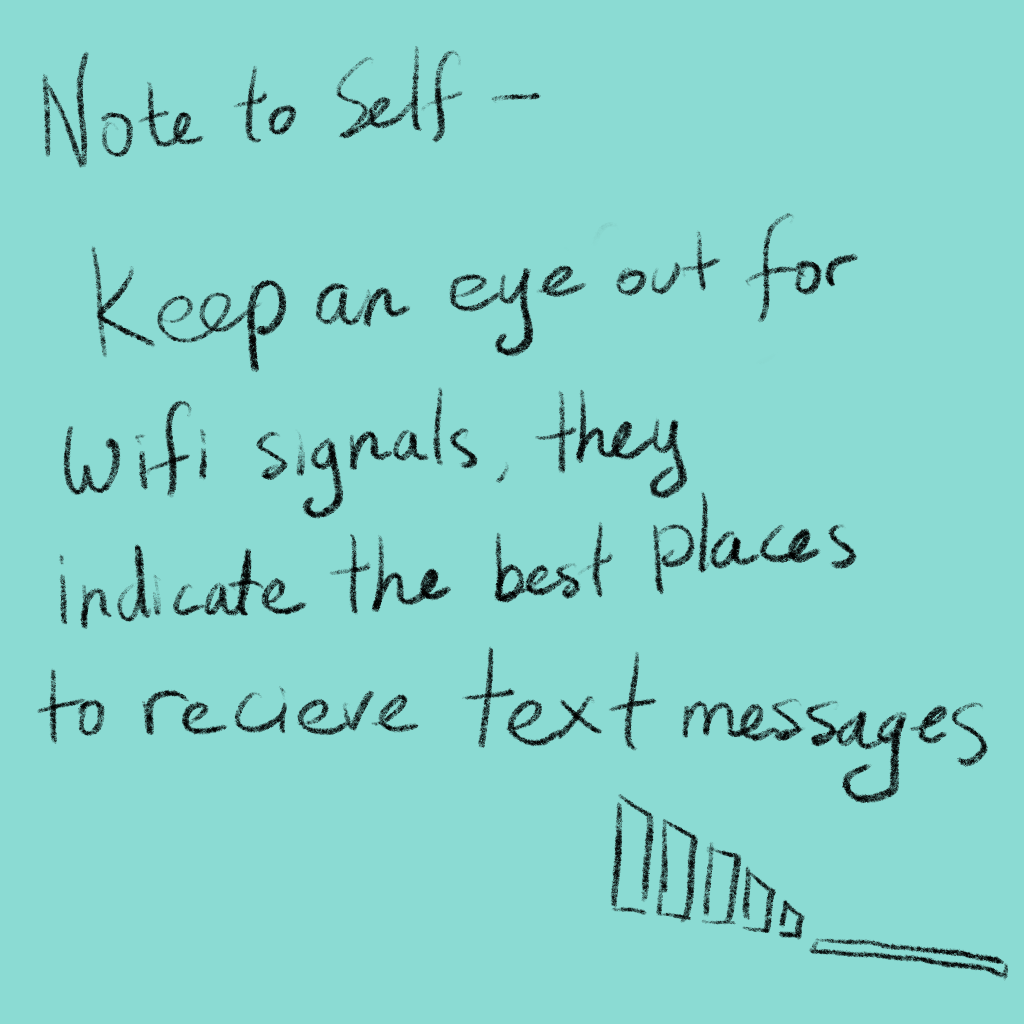 Note to Self –
Keep an eye out for
Wifi signals, they
indicate the best places
to recieve text messages